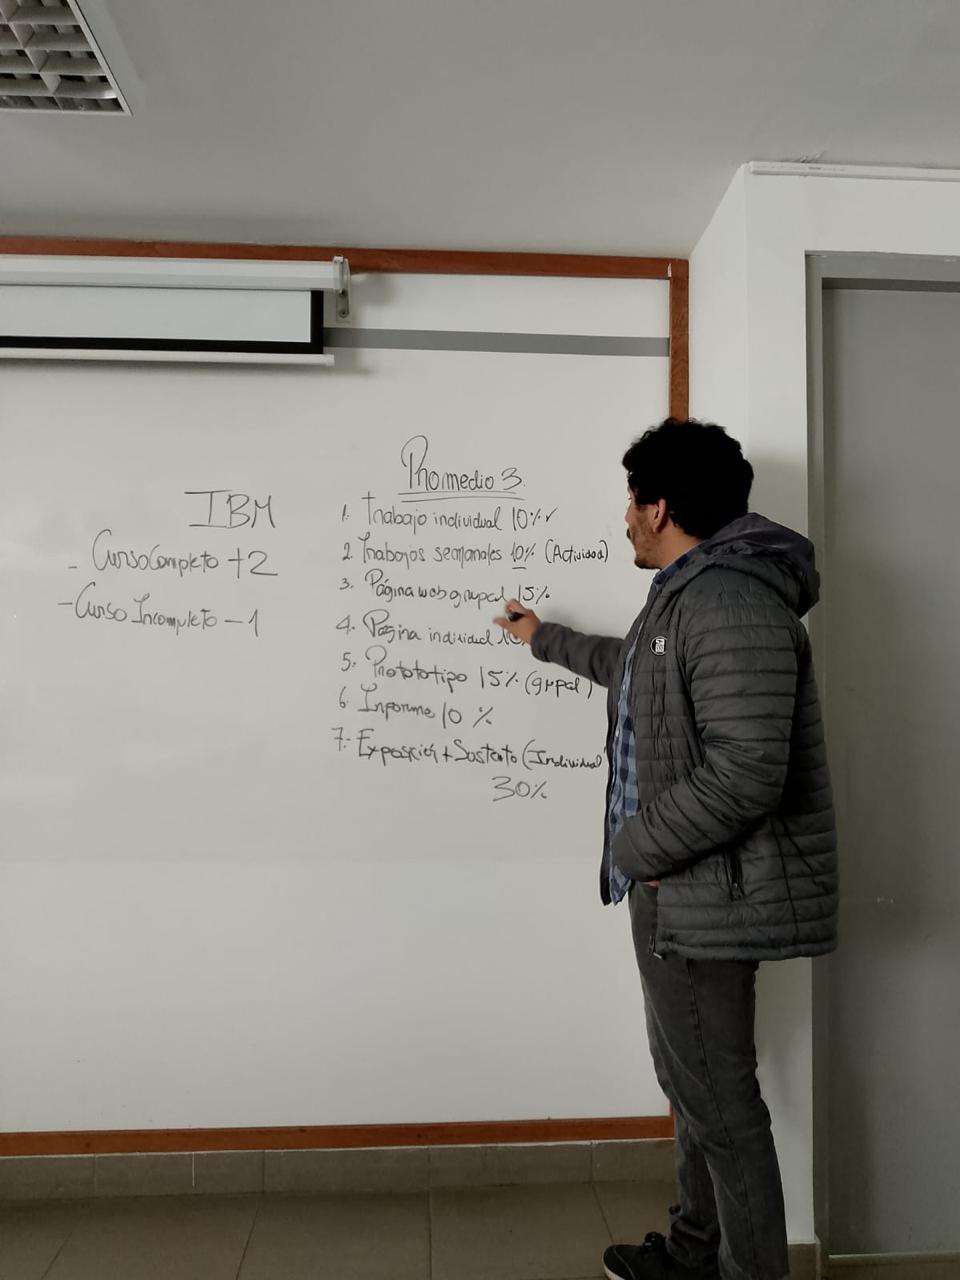 IBM
- Curso Completo +2
- Curso Incompleto -1
Promedio 3.
1. Trabajo individual 10% ✓
2. Trabajos semanales 10% (Actividad)
3. Página web grupal 15%
4. Página individual 10
5. Protototipo 15% (grupal)
6. Informe 10 %
7.- Exposición + Sustento (Individual
30%